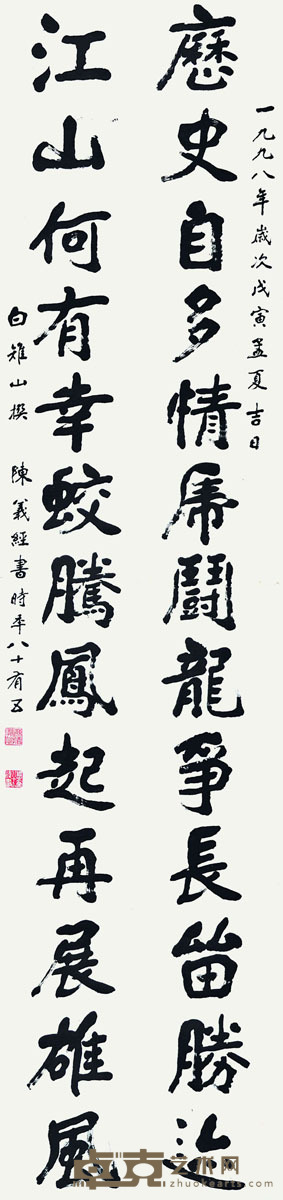 一九九八年歲次戊寅孟夏吉日
歷史自多情虎鬪龍爭長留勝迹
江山何有幸蛟騰鳳起再展雄風
白雉山撰 陳義經書時年八十有五
卓克艺术网
zhuokearts.com